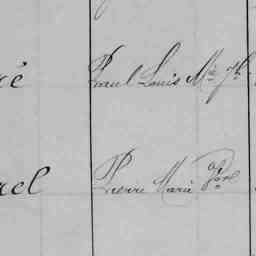 ré Paul Louis Mie Jh
rel Pierre Marie